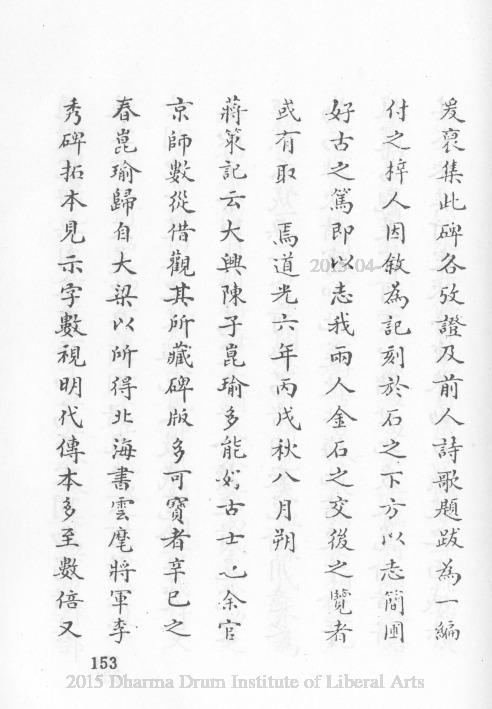 爰裒集此碑各攷證及前人詩歌題跋為一編
付之梓人因敘為記刻於石之下方以志簡圃
好古之篤即以志我兩人金石之交後之覽者
或有取　焉道光六年丙戌秋八月朔
蔣策記云大興陳子崑瑜多能好古士也余官
京師數從借觀其所藏碑版多可寶者辛巳之
春崑瑜歸自大梁以所得北海書雲麾將軍李
秀碑拓本見示字數視明代傳本多至數倍又
153
2015 Dharma Drum Institute of Liberal Arts